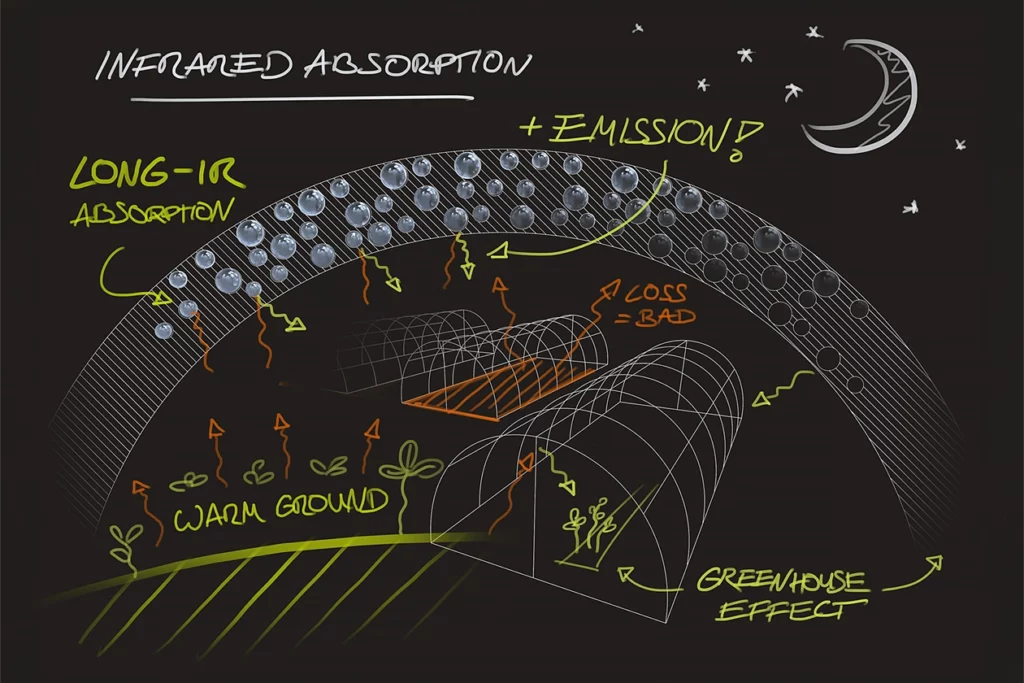 INFRARED ABSORPTION
+ EMISSION!
LONG-IR
ABSORPTION
LOSS
= BAD
WARM GROUND
GREENHOUSE
EFFECT